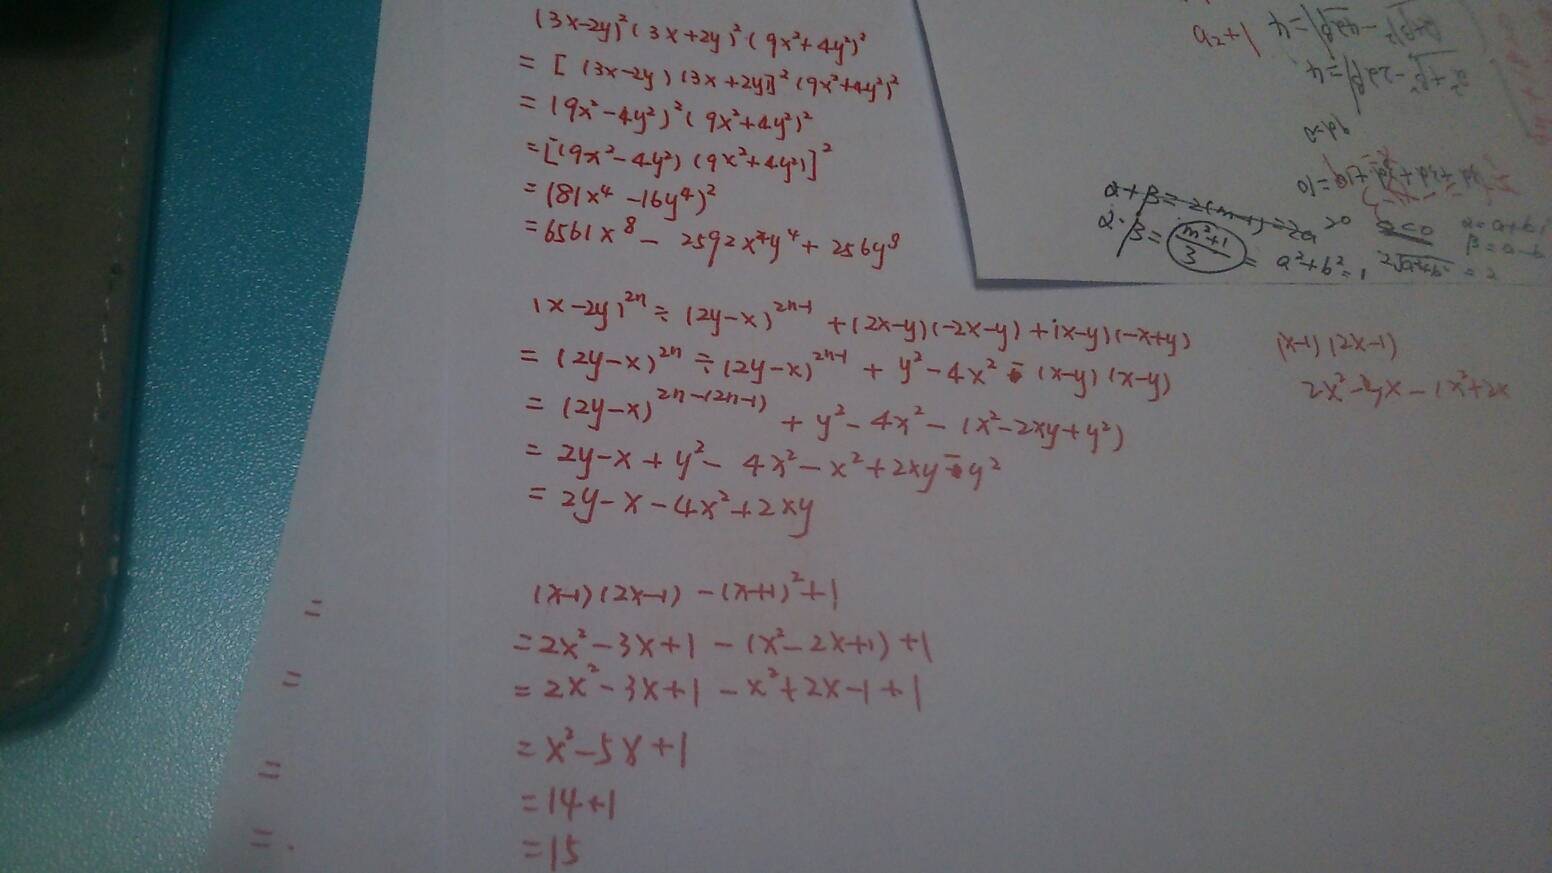 (3x-2y)²(3x+2y)²(9x²+4y²)²
= [(3x-2y)(3x+2y)]²(9x²+4y²)²
= (9x²-4y²)²(9x²+4y²)²
= [(9x²-4y²)(9x²+4y²)]²
= (81x⁴-16y⁴)²
= 6561x⁸ - 2592x⁴y⁴ + 256y⁸
(x-2y)²ⁿ ÷ (2y-x)²ⁿ⁻¹ + (2x-y)(-2x-y) + (x-y)(-x+y)
= (2y-x)²ⁿ ÷ (2y-x)²ⁿ⁻¹ + y² - 4x² - (x-y)(x-y)
= (2y-x)²ⁿ⁻⁽²ⁿ⁻¹⁾ + y² - 4x² - (x²-2xy+y²)
= 2y-x+y²-4x²-x²+2xy-y²
= 2y-x-4x²+2xy
(x-1)(2x-1) - (x+1)² + 1
= 2x²-3x+1 - (x²-2x+1) + 1
= 2x²-3x+1 - x²+2x-1+1
= x²-5x+1
= 14+1
= 15
=
=
=
=.
(x-1)(2x-1)
a₂+1
α+β=-2(m+1)=2a >0
α·β= m²+1/3 = a²+b²=1
α=a+bi
β=a-b